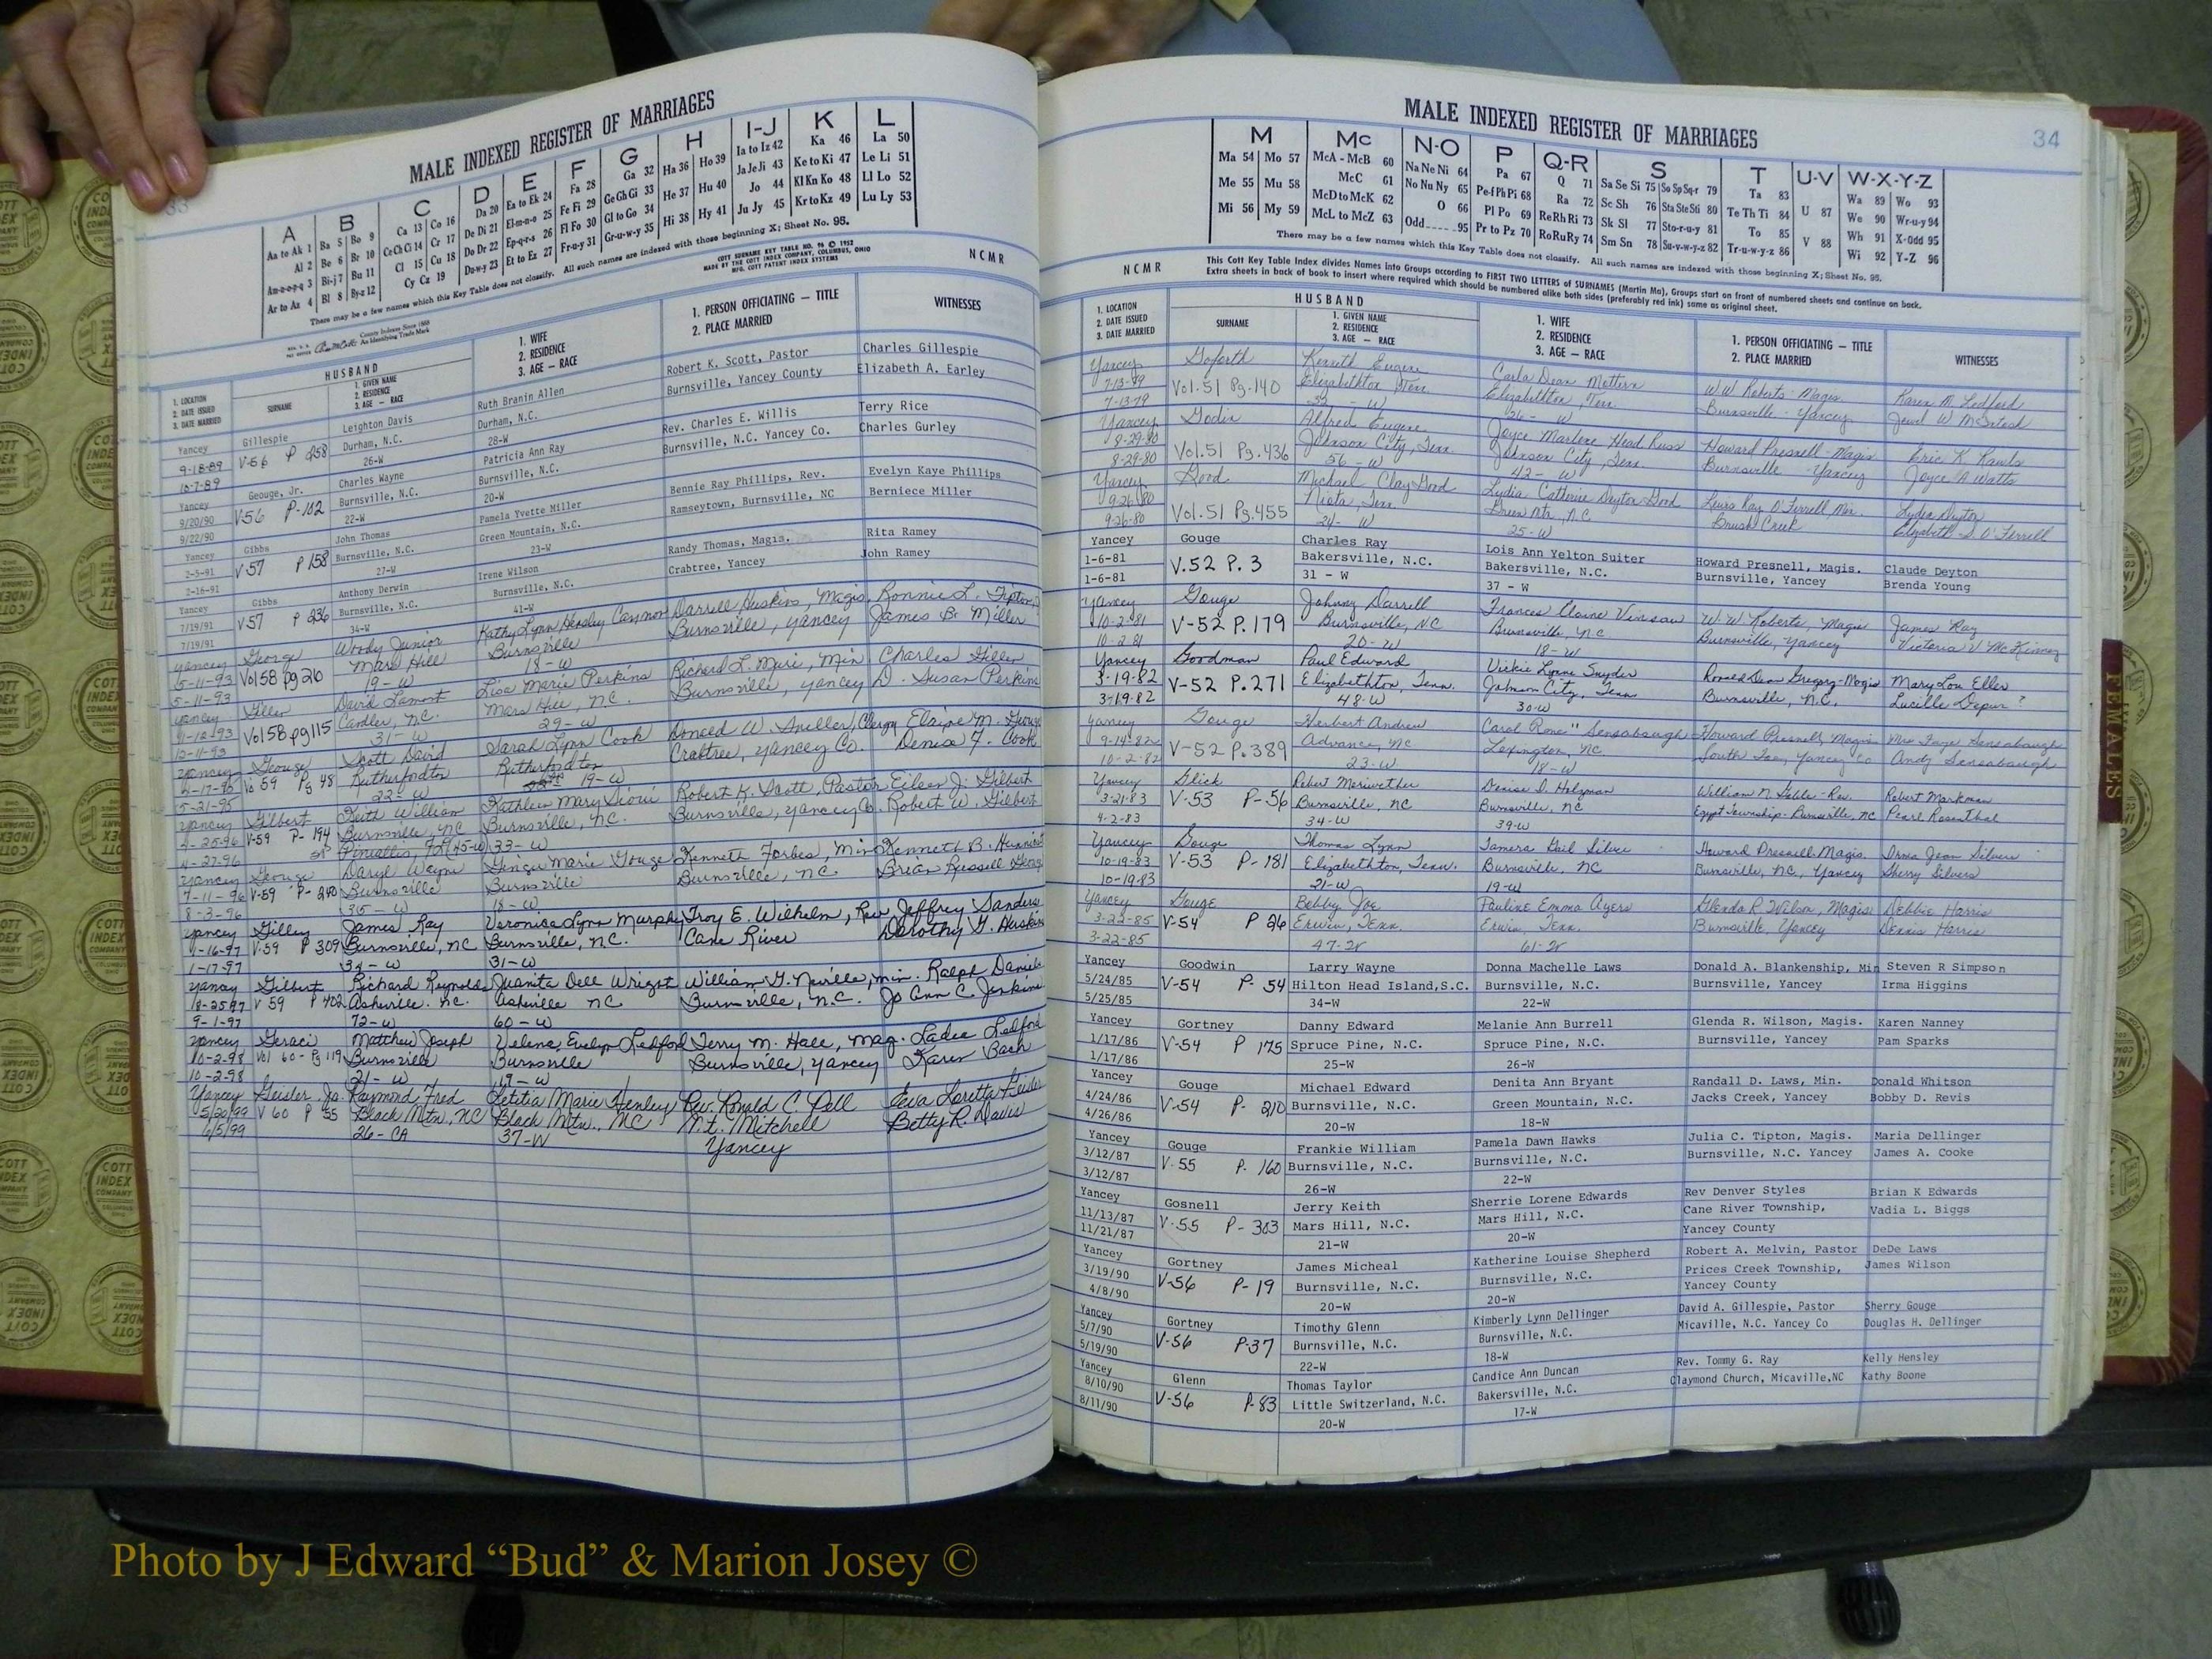 33
MALE INDEXED REGISTER OF MARRIAGES
A B C D E F G H I-J K L
Aa to Ak 1 Ba 5 Bo 9 Ca 13 Co 16 Da 20 Ea to Ek 24 Fa 28 Ga 32 Ha 36 Ho 39 Ia to Iz 42 Ka 46 La 50
Al 2 Be 6 Br 10 Ce Ch Ci 14 Cr 17 De Di 21 El-m-n-o 25 Fe Fi 29 Ge Gh Gi 33 He 37 Hu 40 Ja Je Ji 43 Ke to Ki 47 Le Li 51
Am-n-o-p-q 3 Bi-j 7 Bu 11 Cl 15 Cu 18 Do Dr 22 Ep-q-r-s 26 Fl Fo 30 Gl to Go 34 Hi 38 Hy 41 Jo 44 Kl Kn Ko 48 Ll Lo 52
Ar to Az 4 Bl 8 By-z 12 Cy Cz 19 Du-w-y 23 Et to Ez 27 Fr-u-y 31 Gr-u-w-y 35 Ju Jy 45 Kr to Kz 49 Lu Ly 53
There may be a few names which this Key Table does not classify. All such names are indexed with those beginning X; Sheet No. 95.
COTT SURNAME KEY TABLE NO. 96 © 1952
MADE BY THE COTT INDEX COMPANY, COLUMBUS, OHIO
MFG. COTT PATENT INDEX SYSTEMS
NCMR
County Indexes Since 1888
An Identifying Trade Mark
1. LOCATION
2. DATE ISSUED
3. DATE MARRIED
HUSBAND
SURNAME
1. GIVEN NAME
2. RESIDENCE
3. AGE — RACE
1. WIFE
2. RESIDENCE
3. AGE — RACE
1. PERSON OFFICIATING — TITLE
2. PLACE MARRIED
WITNESSES
Yancey Gillespie Leighton Davis Ruth Branin Allen Robert K. Scott, Pastor Charles Gillespie
9-18-89 V-56 P 258 Durham, N.C. Durham, N.C. Burnsville, Yancey County Elizabeth A. Earley
10-7-89 26-W 28-W
Yancey Geouge, Jr. Charles Wayne Patricia Ann Ray Rev. Charles E. Willis Terry Rice
9/20/90 V56 P-102 Burnsville, N.C. Burnsville, N.C. Burnsville, N.C. Yancey Co. Charles Gurley
9/22/90 22-W 20-W
Yancey Gibbs John Thomas Pamela Yvette Miller Bennie Ray Phillips, Rev. Evelyn Kaye Phillips
2-5-91 V57 P158 Burnsville, N.C. Green Mountain, N.C. Ramseytown, Burnsville, NC Berniece Miller
2-16-91 27-W 23-W
Yancey Gibbs Anthony Derwin Irene Wilson Randy Thomas, Magis. Rita Ramey
7/19/91 V57 P 236 Burnsville, N.C. Burnsville, N.C. Crabtree, Yancey John Ramey
7/19/91 34-W 41-W
Yancey George Woody Junior Kathy Lynn Hensley Cannon Darrell Huskins, Magis. Ronnie L. Tipton
5-11-93 Vol 58 pg 26 Mars Hill Burnsville Burnsville, Yancey James B. Miller
5-11-93 19-W 18-W
Yancey Gillen David Lamont Lisa Marie Perkins Richard L. Muri, Min Charles Gillen
11-12-93 Vol 58 pg 115 Candler, NC. Mars Hill, NC. Burnsville, Yancey D. Susan Perkins
12-11-93 31-W 29-W
Yancey Geouge Scott David Sarah Lynn Cook Donald W. Sneller, Clergy Elaine M. Geouge
Vo 59 Pg 48 Rutherfordton Rutherfordton Crabtree, Yancey Co. Denise F. Cook
5-21-95 22-W 19-W
Yancey Gilbert Keith William Kathleen Mary Robert K. Scott, Pastor Eileen J. Gilbert
4-25-96 V-59 P-194 Burnsville, NC Burnsville, N.C. Burnsville, Yancey Co. Robert W. Gilbert
4-27-96 45-W 33-W
Yancey Geouge Daryl Wayne Ginger Marie Gouge Kenneth Forbes, Min Kenneth B.
7-11-96 V-59 P-240 Burnsville Burnsville Burnsville, N.C. Brian Russell
8-3-96 35-W 18-W
Yancey Gilley James Ray Veronica Lynn Murphy Troy E. Wilhelm, Rev Jeffrey Sanders
1-16-97 V-59 P 309 Burnsville, NC Burnsville, N.C. Cane River Dorothy G. Huskins
1-17-97 34-W 31-W
Yancey Gilbert Richard Reynolds Juanita Dell Wright William G. Neville, Min. Ralph Daniels
V 59 P 402 Asheville, NC. Asheville NC Burnsville, N.C. Jo Ann C. Jenkins
9-1-97 72-W 60-W
Yancey Geraci Matthew Joseph Velena Evelyn Ledford Jerry M. Hall, Mag. Ladea Ledford
10-2-98 Vol 60-Pg 119 Burnsville Burnsville Burnsville, Yancey Karen Bach
10-2-98 21-W 19-W
Yancey Geisler Jr. Raymond Fred Letitia Marie Henley Rev. Ronald C. Pell Eva Loretta Geisler
5/20/99 V 60 P 55 Black Mtn., NC Black Mtn., NC Mt. Mitchell Betty R. Davis
6/5/99 26-CA 37-W Yancey
34
MALE INDEXED REGISTER OF MARRIAGES
M Mc N-O P Q-R S T U-V W-X-Y-Z
Ma 54 Mo 57 McA - McB 60 Na Ne Ni 64 Pa 67 Q 71 Sa Se Si 75 So Sp Sq-r 79 Ta 83 U 87 Wa 89 Wo 93
Me 55 Mu 58 McC 61 No Nu Ny 65 Pe-f Ph Pi 68 Ra 72 Sc Sh 76 Sta Ste Sti 80 Te Th Ti 84 V 88 We 90 Wr-u-y 94
Mi 56 My 59 McD to McK 62 O 66 Pl Po 69 Re Rh Ri 73 Sk Sl 77 Sto-r-u-y 81 To 85 Wh 91 X-Odd 95
McL to McZ 63 Odd 95 Pr to Pz 70 Ro Ru Ry 74 Sm Sn 78 Su-v-w-y-z 82 Tr-u-w-y-z 86 Wi 92 Y-Z 96
There may be a few names which this Key Table does not classify. All such names are indexed with those beginning X; Sheet No. 95.
NCMR
This Cott Key Table Index divides Names into Groups according to FIRST TWO LETTERS of SURNAMES (Martin Ma), Groups start on front of numbered sheets and continue on back.
Extra sheets in back of book to insert where required which should be numbered alike both sides (preferably red ink) same as original sheet.
1. LOCATION
2. DATE ISSUED
3. DATE MARRIED
HUSBAND
SURNAME
1. GIVEN NAME
2. RESIDENCE
3. AGE — RACE
1. WIFE
2. RESIDENCE
3. AGE — RACE
1. PERSON OFFICIATING — TITLE
2. PLACE MARRIED
WITNESSES
Yancey Goforth Kenneth Eugene Carla Dean Mottern W.W. Roberts-Magis. Karen M. Ledford
7-13-79 Vol.51 Pg.140 Elizabethton Tenn. Elizabethton, Tenn. Burnsville-Yancey Jewel W McIntosh
7-13-79 W 26-W
Yancey Godin Alfred Eugene Joyce Marlene Head Russ Howard Presnell-Magis Eric K. Rawls
8-29-80 Vol.51 Pg.436 Johnson City, Tenn. Johnson City, Tenn. Burnsville-Yancey Joyce A Watts
8-29-80 56-W 42-W
Yancey Good Michael Clay Good Lydia Catherine Deyton Good Lewis Ray O'Ferrell, Min. Lydia Deyton
9-26-80 Vol.51 Pg.455 Niota, Tenn. Green Mtn., N.C. Brush Creek Elizabeth S. O'Ferrell
9-26-80 24-W 25-W
Yancey Gouge Charles Ray Lois Ann Yelton Suiter Howard Presnell, Magis. Claude Deyton
1-6-81 V.52 P.3 Bakersville, N.C. Bakersville, N.C. Burnsville, Yancey Brenda Young
1-6-81 31 - W 37 - W
Yancey Gouge Johnny Darrell Frances Elaine Vinson W.W. Roberts, Magis James Ray
10-2-81 V-52 P.179 Burnsville, NC Burnsville, N.C. Burnsville, Yancey Victoria V McKinney
10-2-81 20-W 18-W
Yancey Goodman Paul Edward Vickie Lynne Snyder Ronald Dean Gregory-Magis Mary Lou Eller
3-19-82 V-52 P.271 Elizabethton, Tenn. Johnson City, Tenn Burnsville, N.C. Lucille Depur ?
3-19-82 48-W 30-W
Yancey Gouge Herbert Andrew Carol Rone" Sensabaugh Howard Presnell, Magis Mrs Faye Sensabaugh
9-19-82 V-52 P.389 Advance, NC Lexington, NC South Toe, Yancey Co Andy Sensabaugh
10-2-82 23-W 18-W
Yancey Glick Robert Meriwether Denise D. Holzman William N. Rev. Robert Markman
3-21-83 V-53 P-56 Burnsville, NC Burnsville, NC Egypt Township-Burnsville, NC Pearl Rosenthal
4-2-83 34-W 39-W
Yancey Gouge Thomas Lynn Tamera Gail Silver Howard Presnell-Magis. Irma Jean Silver
10-19-83 V-53 P-181 Elizabethton, Tenn. Burnsville, NC Burnsville, NC, Yancey Sherry Silvers
10-19-83 21-W 19-W
Yancey Gouge Bobby Joe Pauline Emma Ayers Glenda R Wilson, Magis Debbie Harris
3-22-85 V-54 P 26 Erwin, Tenn. Erwin, Tenn. Burnsville, Yancey Dennis Harris
3-22-85 47-W 61-W
Yancey Goodwin Larry Wayne Donna Machelle Laws Donald A. Blankenship, Min Steven R Simpson
5/24/85 V-54 P. 54 Hilton Head Island,S.C. Burnsville, N.C. Burnsville, Yancey Irma Higgins
5/25/85 34-W 22-W
Yancey Gortney Danny Edward Melanie Ann Burrell Glenda R. Wilson, Magis. Karen Nanney
1/17/86 V-54 P 175 Spruce Pine, N.C. Spruce Pine, N.C. Burnsville, Yancey Pam Sparks
1/17/86 25-W 26-W
Yancey Gouge Michael Edward Denita Ann Bryant Randall D. Laws, Min. Donald Whitson
4/24/86 V-54 P- 210 Burnsville, N.C. Green Mountain, N.C. Jacks Creek, Yancey Bobby D. Revis
4/26/86 20-W 18-W
Yancey Gouge Frankie William Pamela Dawn Hawks Julia C. Tipton, Magis. Maria Dellinger
3/12/87 V-55 P. 160 Burnsville, N.C. Burnsville, N.C. Burnsville, N.C. Yancey James A. Cooke
3/12/87 26-W 22-W
Yancey Gosnell Jerry Keith Sherrie Lorene Edwards Rev Denver Styles Brian K Edwards
11/13/87 V-55 P-303 Mars Hill, N.C. Mars Hill, N.C. Cane River Township, Vadia L. Biggs
11/21/87 21-W 20-W Yancey County
Yancey Gortney James Micheal Katherine Louise Shepherd Robert A. Melvin, Pastor DeDe Laws
3/19/90 V-56 P-19 Burnsville, N.C. Burnsville, N.C. Prices Creek Township, James Wilson
4/8/90 20-W 20-W Yancey County
Yancey Gortney Timothy Glenn Kimberly Lynn Dellinger David A. Gillespie, Pastor Sherry Gouge
5/7/90 V-56 P-37 Burnsville, N.C. Burnsville, N.C. Micaville, N.C. Yancey Co Douglas H. Dellinger
5/19/90 22-W 18-W
Yancey Glenn Thomas Taylor Candice Ann Duncan Rev. Tommy G. Ray Kelly Hensley
8/10/90 V-56 P-83 Little Switzerland, N.C. Bakersville, N.C. Claymond Church, Micaville,NC Kathy Boone
8/11/90 20-W 17-W
FEMALES
COTT INDEX COMPANY
Photo by J Edward “Bud” & Marion Josey ©